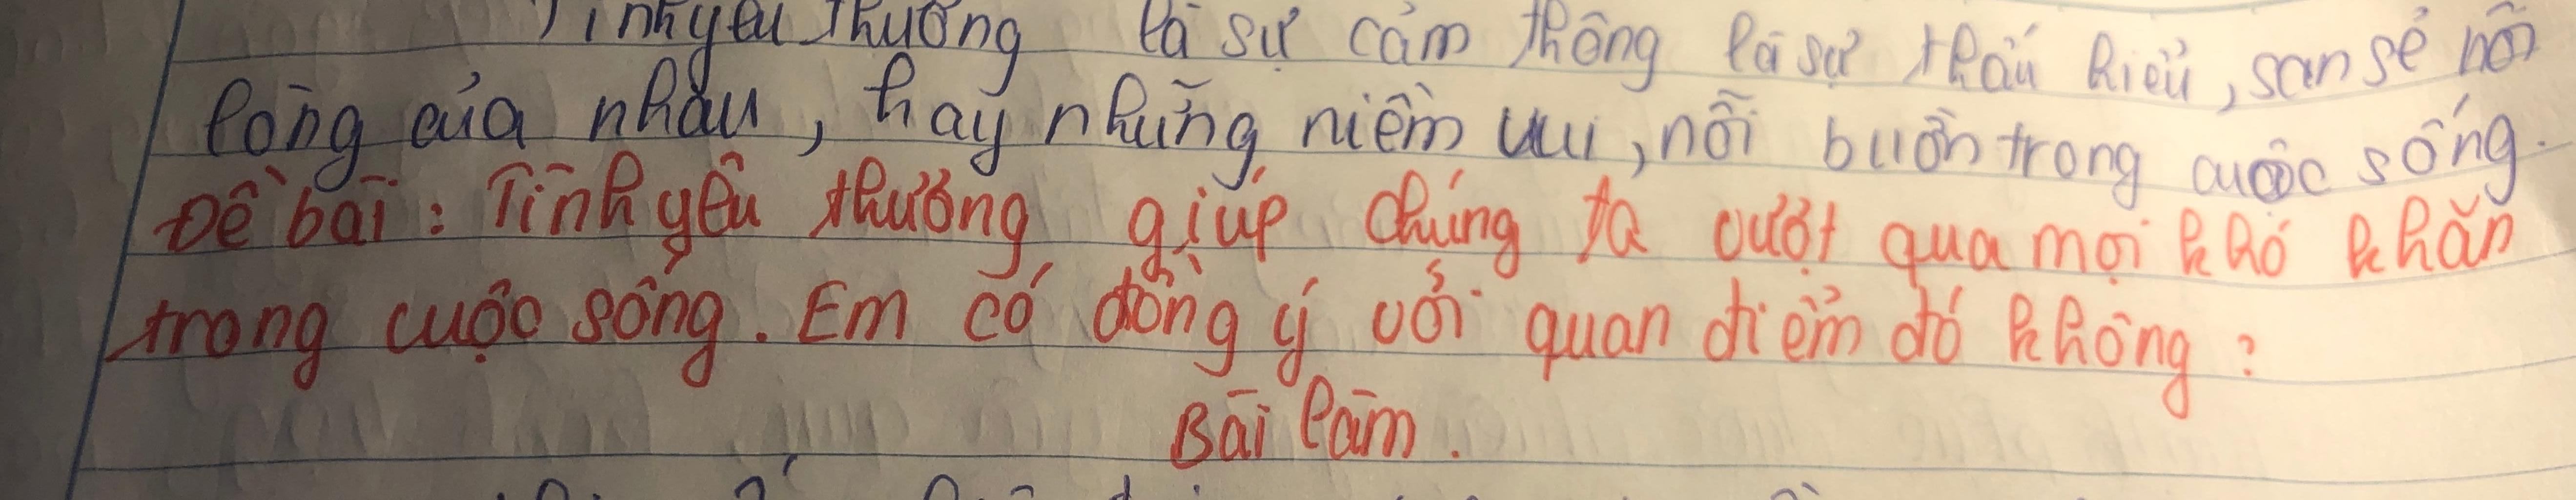 Tình yêu thương là sự cảm thông là sự thấu hiểu, san sẻ nỗi
lòng của nhau, hay những niềm vui, nỗi buồn trong cuộc sống.
Đề bài: Tình yêu thương giúp chúng ta vượt qua mọi khó khăn
trong cuộc sống. Em có đồng ý với quan điểm đó không?
Bài làm.